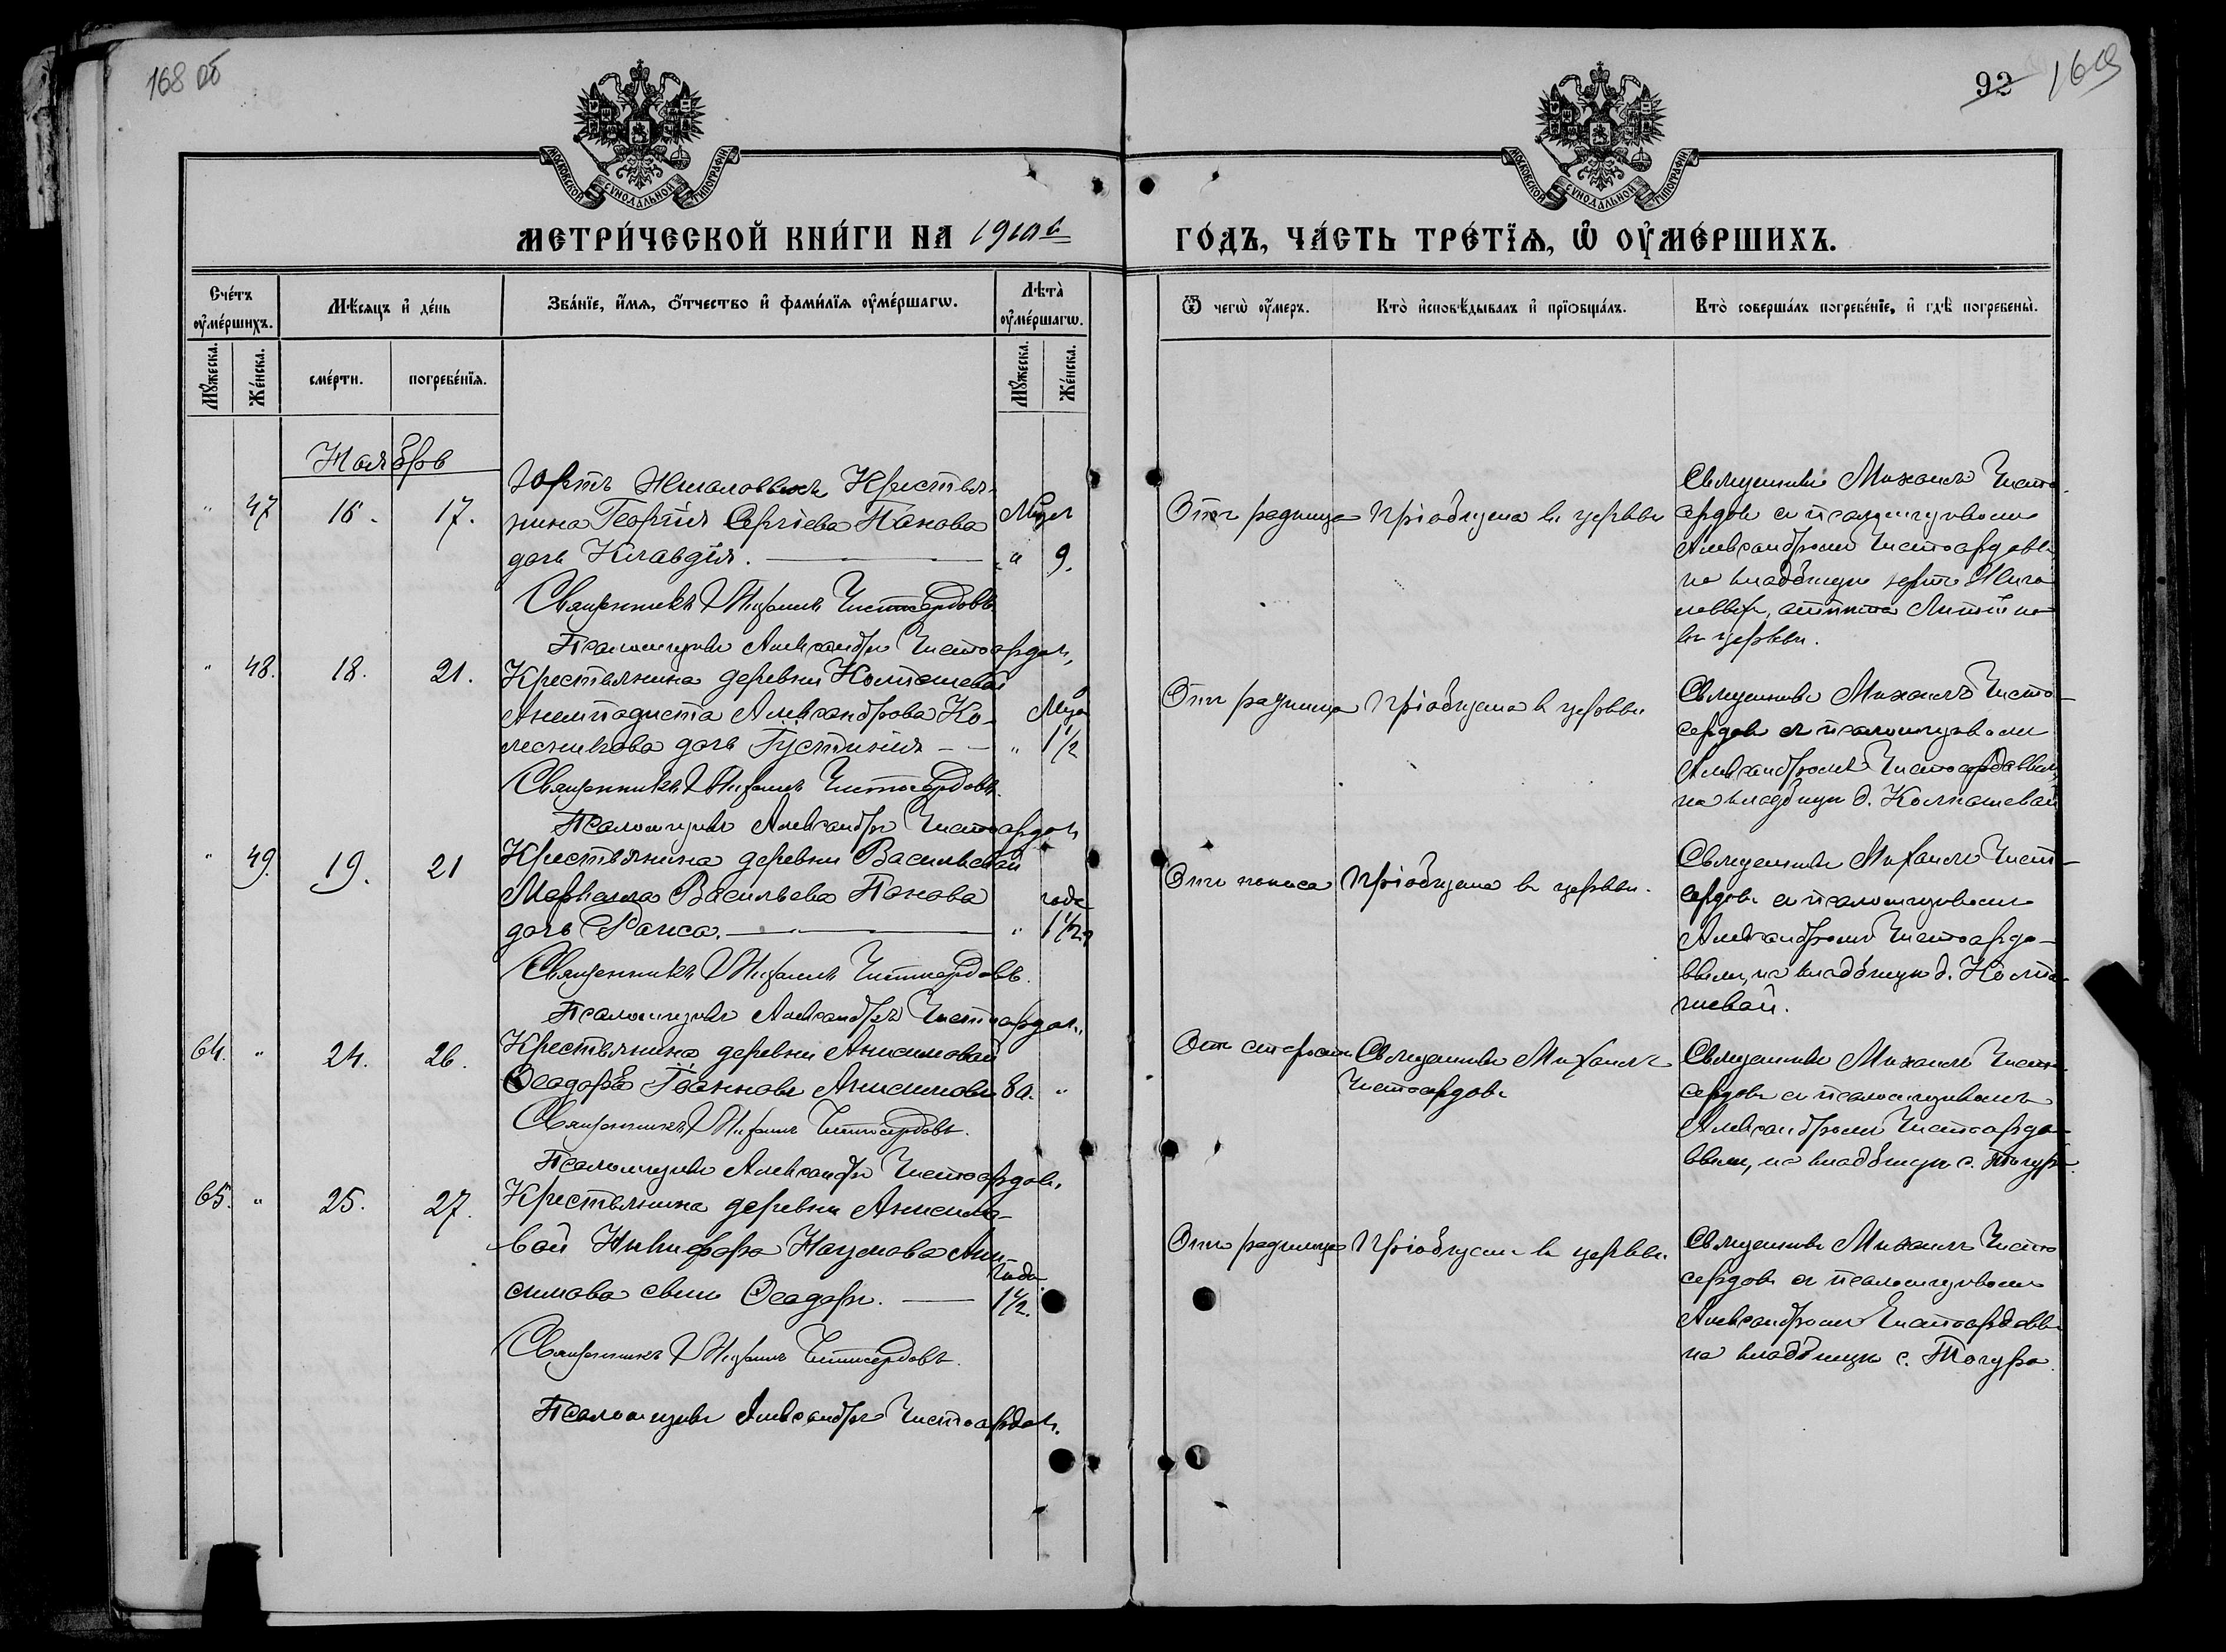 168 об
92 169
МОСКОВСКОЙ СѴНОДАЛЬНОЙ ТИПОГРАФІИ
МОСКОВСКОЙ СѴНОДАЛЬНОЙ ТИПОГРАФІИ
МЕТРИ́ЧЕСКОЙ КНИ́ГИ НА 1910й
ГО́ДЪ, ЧА́СТЬ ТРЕ́ТЇѦ, Ѡ҆ ОУ҆МЕ́РШИХЪ.
Сче́тъ оу҆ме́ршихъ.
Мѣ́сѧцъ и҆ де́нь
Зва́нїе, и҆́мѧ, ѻ҆́тчество и҆ фами́лїѧ оу҆ме́ршагѡ.
Лѣта̀ оу҆ме́ршагѡ.
Ѿ чегѡ̀ оу҆́меръ.
Кто̀ и҆сповѣ́дывалъ и҆ прїѻбща́лъ.
Кто̀ соверша́лъ погребе́нїе, и҆ гдѣ̀ погребены̀.
Мꙋ́жеска.
Же́нска.
сме́рти.
погребе́нїѧ.
Мꙋ́жеска.
Же́нска.
Ноябрь
" 47 16. 17.
Юртъ Крестья-
нина Георгія Сергіева Панова
дочь Клавдія. " 9.
Мѣся
Священникъ Михаилъ Чистосердовъ
Псаломщикъ Александръ Чистосердовъ
Отъ родимца Пріобщена въ церкви
Священникъ Михаилъ Чисто-
сердовъ съ псаломщикомъ
Александромъ Чистосердовымъ
на кладбищѣ юртъ
въ церкви.
" 48. 18. 21.
Крестьянина деревни Колпашевой
Анемподиста Александрова Ко-
лесникова дочь Іустинія " 1½
Мѣся
Священникъ Михаилъ Чистосердовъ
Псаломщикъ Александръ Чистосердовъ
Отъ родимца Пріобщена въ церкви
Священникъ Михаилъ Чисто-
сердовъ съ псаломщикомъ
Александромъ Чистосердовымъ
на кладбищѣ д. Колпашевой
" 49. 19. 21
Крестьянина деревни Васильевой
Василіева Панова года
дочь Раиса. " 1½
Священникъ Михаилъ Чистосердовъ.
Псаломщикъ Александръ Чистосердовъ
Отъ поноса Пріобщена въ церкви.
Священникъ Михаилъ Чисто-
сердовъ съ псаломщикомъ
Александромъ Чистосердо-
вымъ, на кладбищѣ д. Колпа-
шевой.
64. " 24. 26.
Крестьянина деревни Анисимовой
Ѳеодоръ Іоанновъ Анисимовъ 80. "
Священникъ Михаилъ Чистосердовъ.
Псаломщикъ Александръ Чистосердовъ.
Отъ старости Священникъ Михаилъ
Чистосердовъ
Священникъ Михаилъ Чисто-
сердовъ съ псаломщикомъ
Александромъ Чистосердо-
вымъ, на кладбищѣ с. Тогура
65. " 25. 27.
Крестьянина деревни Анисимо-
вой Никифора Наумова Ани-
симова сынъ Ѳеодоръ. 1½.
года
Священникъ Михаилъ Чистосердовъ.
Псаломщикъ Александръ Чистосердовъ.
Отъ родимца Пріобщенъ въ церкви.
Священникъ Михаилъ Чисто
сердовъ съ псаломщикомъ
Александромъ Чистосердовымъ
на кладбищѣ с. Тогура.